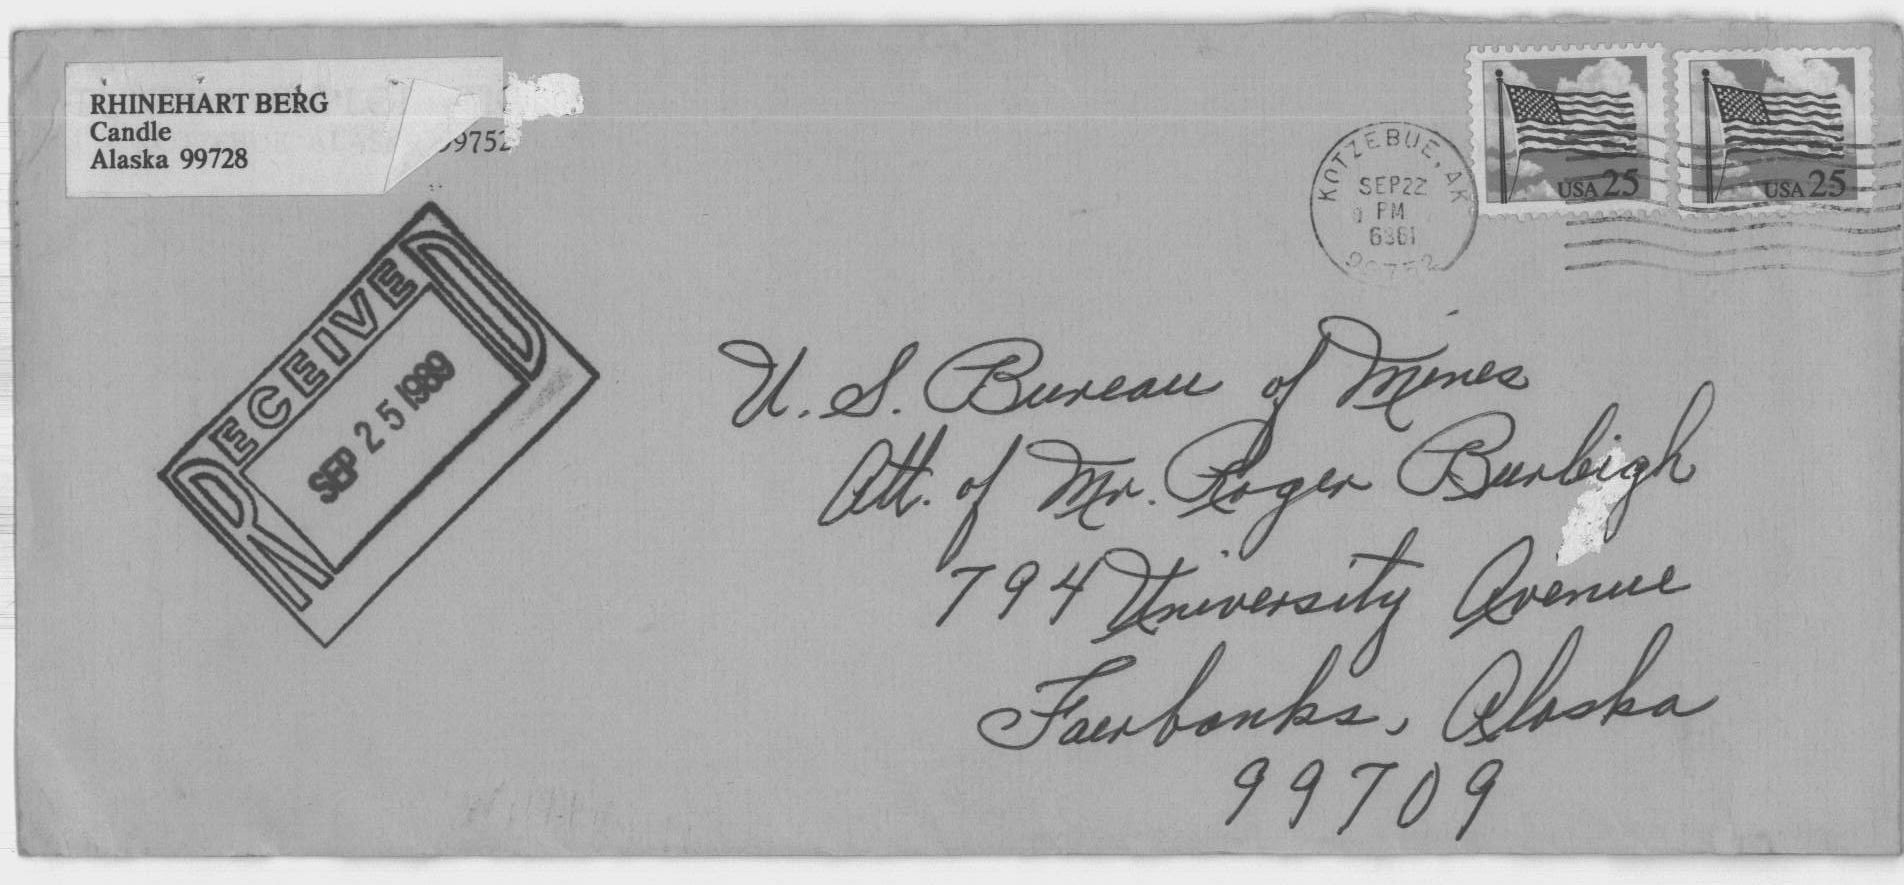 RHINEHART BERG
Candle
Alaska 99728
99752
KOTZEBUE, AK
SEP 22
PM
99752
USA 25
USA 25
RECEIVED
SEP 25 1989
U. S. Bureau of Mines
Att. of Mr. Roger Burleigh
794 University Avenue
Fairbanks, Alaska
99709